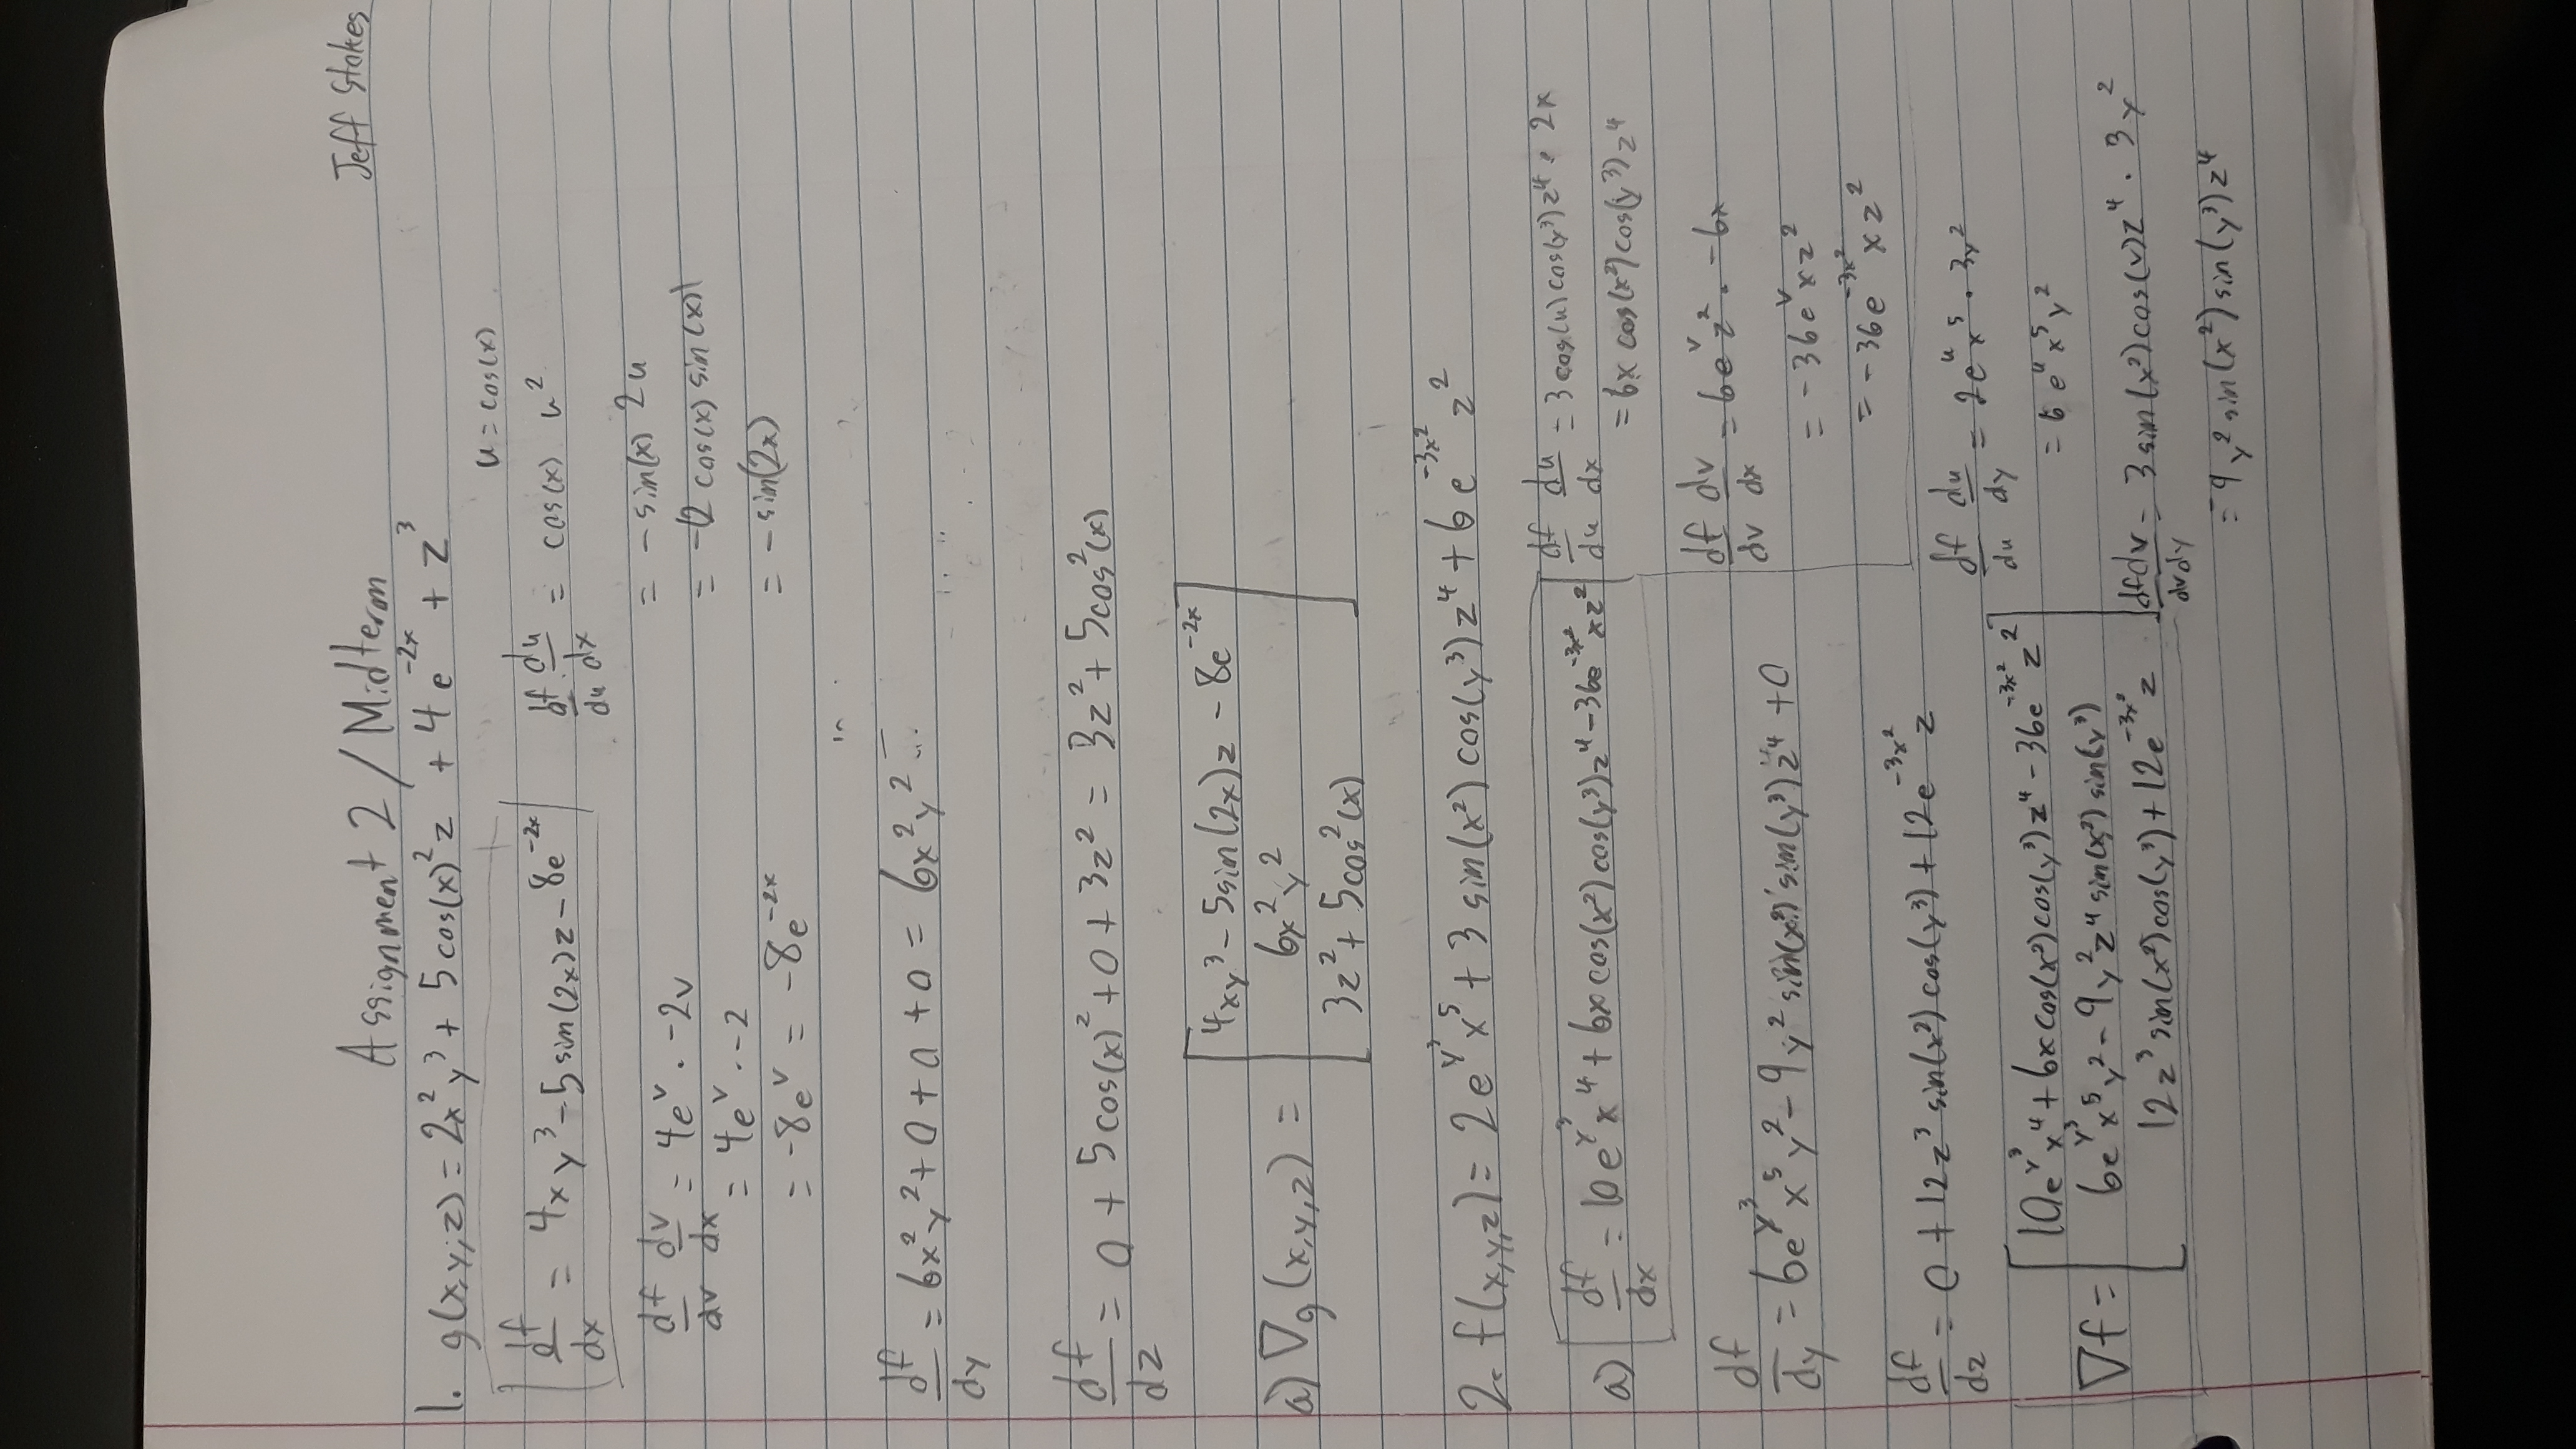 Assignment 2 / Midterm
Jeff Stokes
1. g(x,y,z) = 2x²y³ + 5cos(x)²z + 4e^(-2x) + z³
u = cos(x)
df/dx = 4xy³ - 5sin(2x)z - 8e^(-2x)
df/du du/dx = cos(x) u²
= -sin(x) 2u
= -(2 cos(x) sin(x))
= -sin(2x)
df/dv dv/dx = 4e^v · -2v
= 4e^v · -2
= -8e^v = -8e^(-2x)
df/dy = 6x²y² + 0 + 0 + 0 = 6x²y²
df/dz = 0 + 5cos(x)² + 0 + 3z² = 3z² + 5cos²(x)
a) ∇g(x,y,z) =
4xy³ - 5sin(2x)z - 8e^(-2x)
6x²y²
3z² + 5cos²(x)
2. f(x,y,z) = 2e^(y³)x⁵ + 3 sin(x²) cos(y³)z⁴ + 6e^(-3x²) z²
a) df/dx = 10e^(y³)x⁴ + 6x cos(x²) cos(y³)z⁴ - 36e^(-3x²)xz²
df/du du/dx = 3 cos(u) cos(y³)z⁴ · 2x
= 6x cos(x²) cos(y³) z⁴
df/dv dv/dx = 6e^v z² · -6x
= -36e^v xz²
= -36e^(-3x²) xz²
df/dy = 6e^(y³)x⁵y² - 9y² sin(x²) sin(y³)z⁴ + 0
df/dz = 0 + 12z³ sin(x²) cos(y³) + 12e^(-3x²)z
df/du du/dy = 2e^u x⁵ · 3y²
= 6 e^u x⁵y²
∇f =
10e^(y³)x⁴ + 6x cos(x²) cos(y³)z⁴ - 36e^(-3x²)z²
6e^(y³)x⁵y² - 9y²z⁴ sin(x²) sin(y³)
12z³ sin(x²) cos(y³) + 12e^(-3x²)z
df/dv dv/dy = 3 sin(x²) cos(v)z⁴ · 3y²
= -9y² sin(x²) sin(y³)z⁴